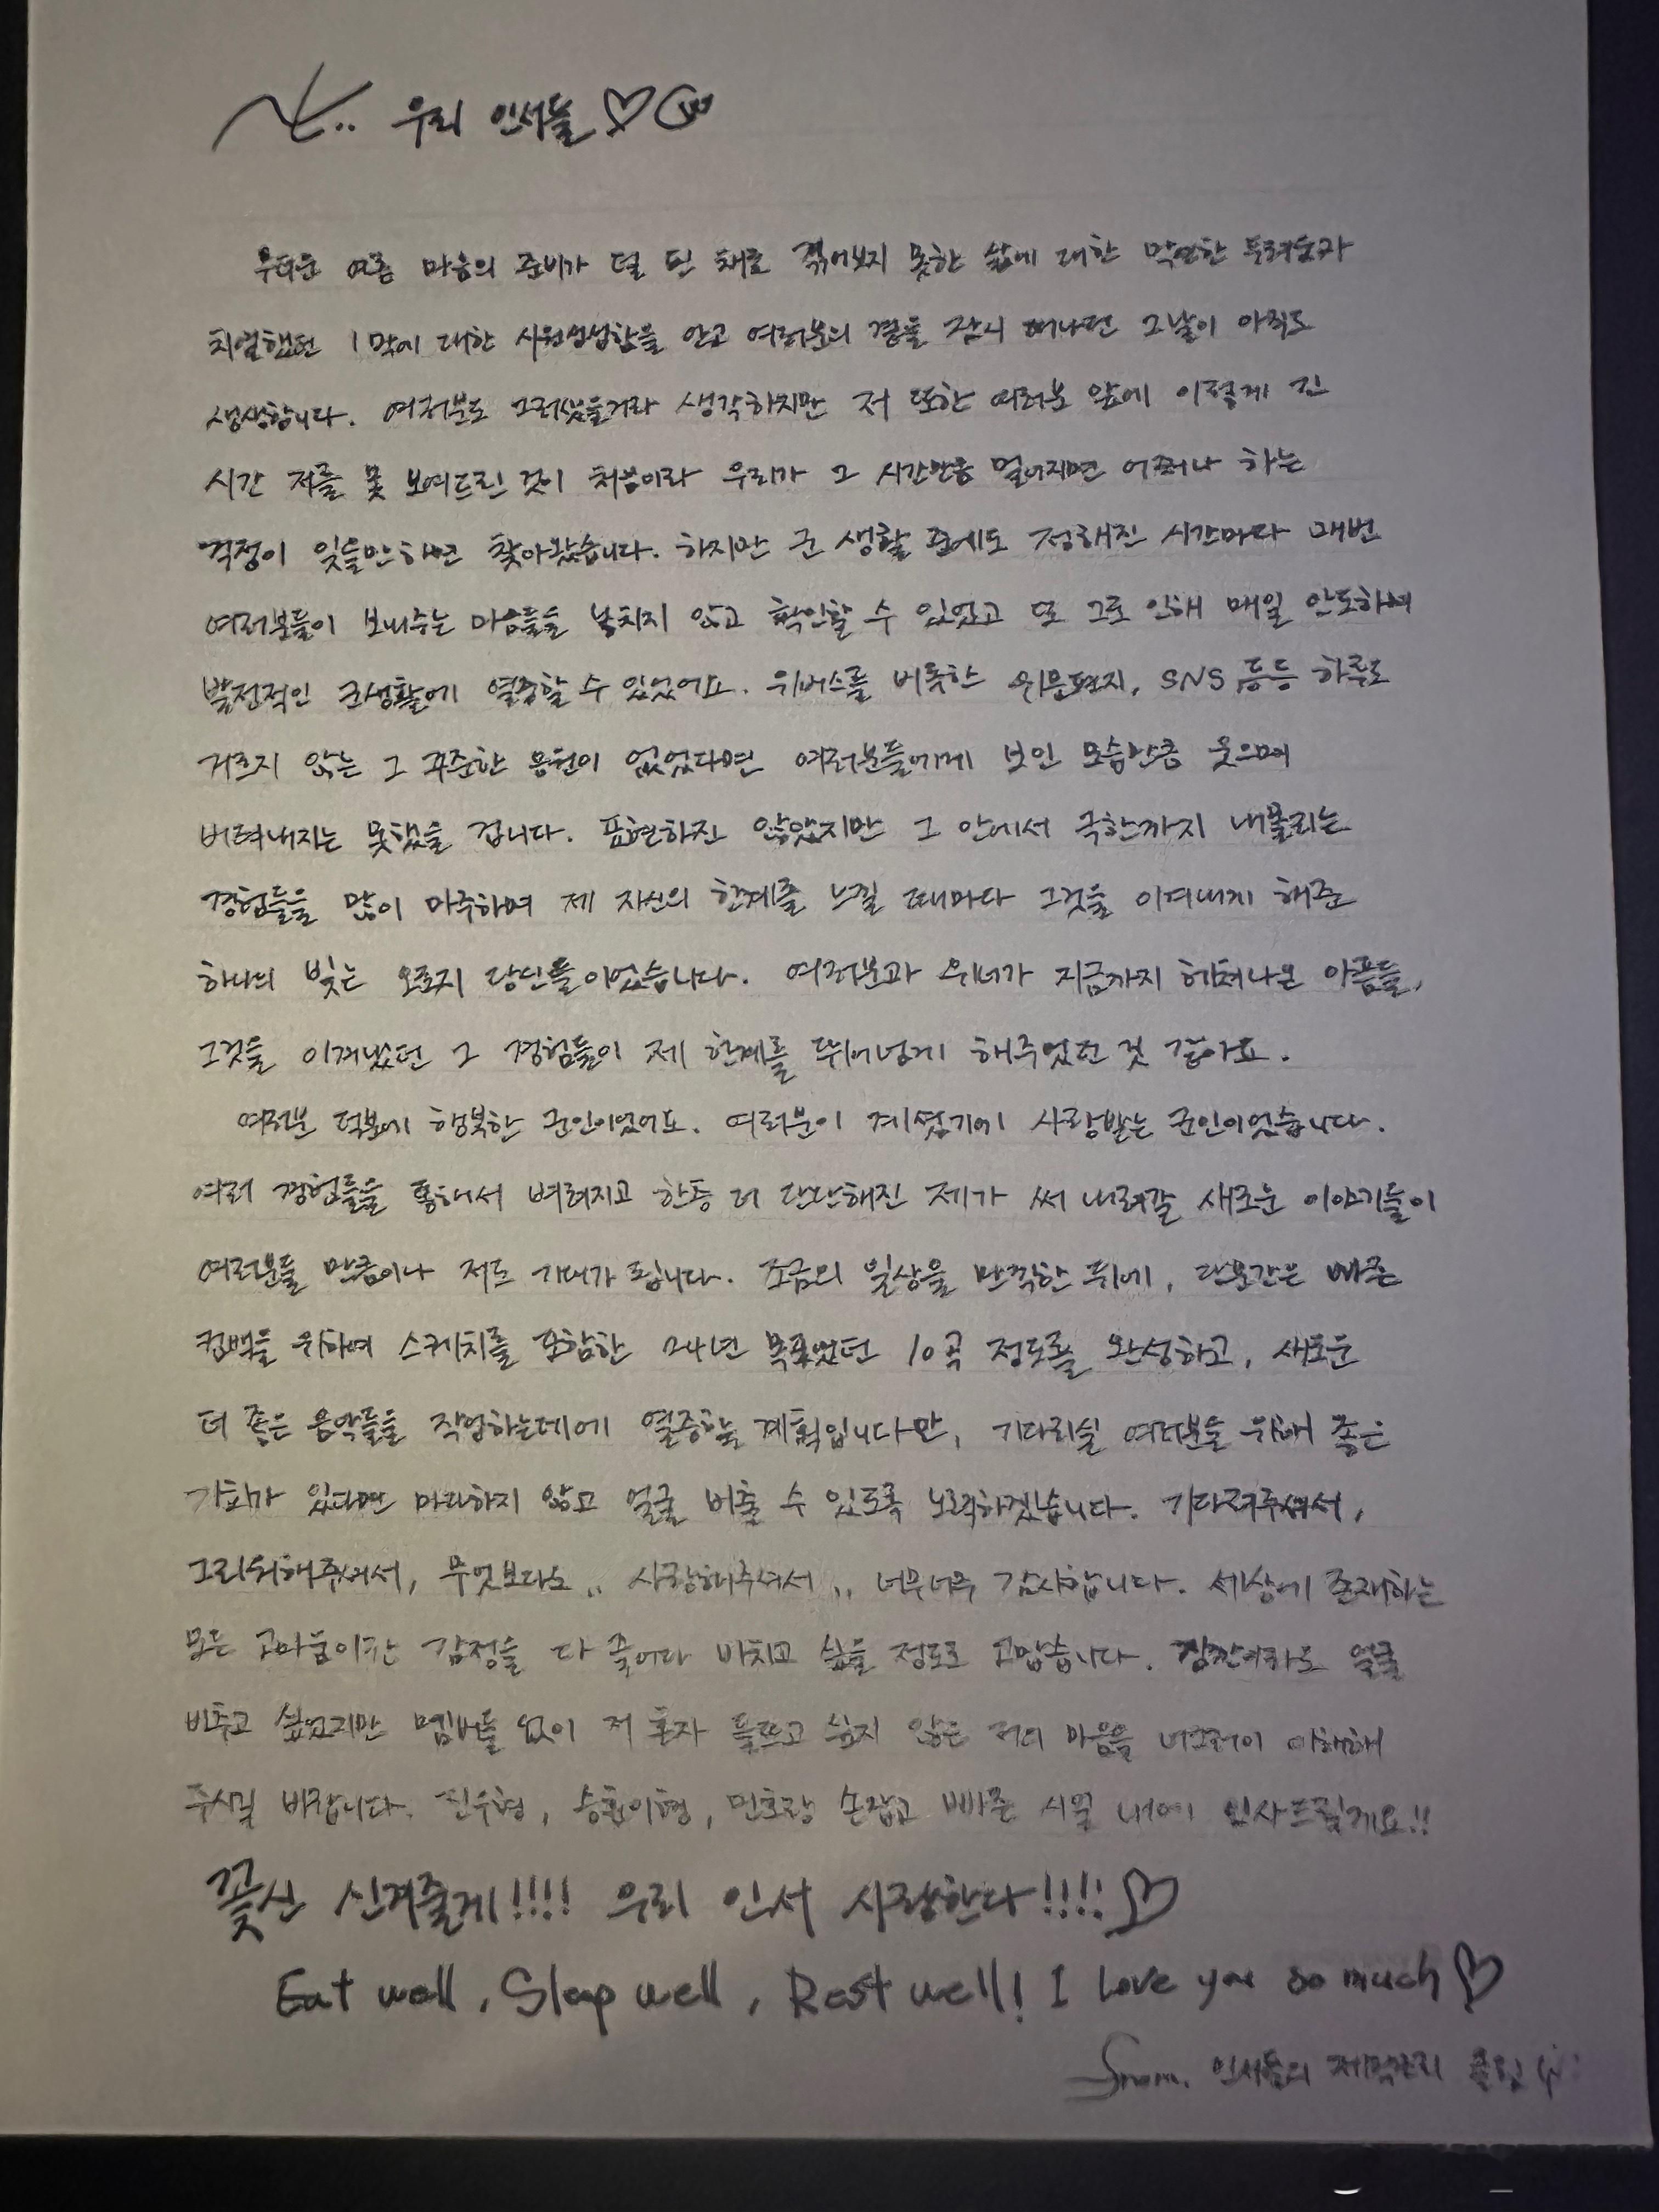 To.. 우리 인서들♡
무더운 여름 마음의 준비가 덜 된 채로 겪어보지 못한 삶에 대한 막연한 두려움과
치열했던 1막에 대한 시원섭섭함을 안고 여러분의 곁을 잠시 떠나던 그날이 아직도
생생합니다. 여러분도 그러셨을거라 생각하지만 저 또한 여러분 앞에 이렇게 긴
시간 저를 못 보여드린 것이 처음이라 우리가 그 시간만큼 멀어지면 어쩌나 하는
걱정이 잊을만하면 찾아왔습니다. 하지만 군 생활 중에도 정해진 시간마다 매번
여러분들이 보내주는 마음들을 놓치지 않고 확인할 수 있었고 또 그로 인해 매일 안도하며
발전적인 군생활에 열중할 수 있었어요. 위버스를 비롯한 위문편지, SNS 등등 하루도
거르지 않는 그 꾸준한 응원이 없었다면 여러분들에게 보인 모습만큼 웃으며
버텨내지는 못했을 겁니다. 표현하진 않았지만 그 안에서 극한까지 내몰리는
경험들을 많이 마주하며 제 자신의 한계를 느낄 때마다 그것을 이겨내게 해준
하나의 빛은 오로지 당신들이었습니다. 여러분과 위너가 지금까지 헤쳐나온 아픔들,
그것을 이겨냈던 그 경험들이 제 한계를 뛰어넘게 해주었던 것 같아요.
여러분 덕분에 행복한 군인이었어요. 여러분이 계셨기에 사랑받는 군인이었습니다.
여러 경험들을 통해서 벼려지고 한층 더 단단해진 제가 써 내려갈 새로운 이야기들이
여러분들 만큼이나 저도 기대가 됩니다. 조금의 일상을 만끽한 뒤에, 당분간은 빠른
컴백을 위하여 스케치를 포함한 24년 목표였던 10곡 정도를 완성하고, 새로운
더 좋은 음악들을 작업하는데에 열중할 계획입니다만, 기다리실 여러분을 위해 좋은
기회가 있다면 마다하지 않고 얼굴 비출 수 있도록 노력하겠습니다. 기다려주셔서,
그리워해주셔서, 무엇보다도.. 사랑해주셔서.. 너무너무 감사합니다. 세상에 존재하는
모든 고마움이란 감정을 다 줄여다 바치고 싶을 정도로 고맙습니다. 잠깐이라도 얼굴
비추고 싶었지만 멤버들 없이 저 혼자 들뜨고 싶지 않은 저의 마음을 너그러이 이해해
주시길 바랍니다. 진우형, 승훈이형, 민호랑 손잡고 빠른 시일 내에 인사드릴게요!!
꽃신 신겨줄게!!!! 우리 인서 사랑한다!!!!♡
Eat well, Sleep well, Rest well! I Love you so much♡
From. 인서들의